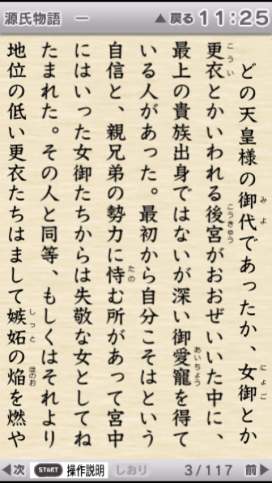 源氏物語　一
▲戻る 11:25
どの天皇様の御代であったか、女御とか
みよ
にょご
更衣とかいわれる後宮がおおぜいいた中に、
こうい
こうきゅう
最上の貴族出身ではないが深い御愛寵を得て
あいちょう
いる人があった。最初から自分こそはという
自信と、親兄弟の勢力に恃む所があって宮中
たの
にはいった女御たちからは失敬な女としてね
たまれた。その人と同等、もしくはそれより
地位の低い更衣たちはまして嫉妬の焔を燃や
しっと
ほのお
◀次 START 操作説明 しおり 3/117 前▶